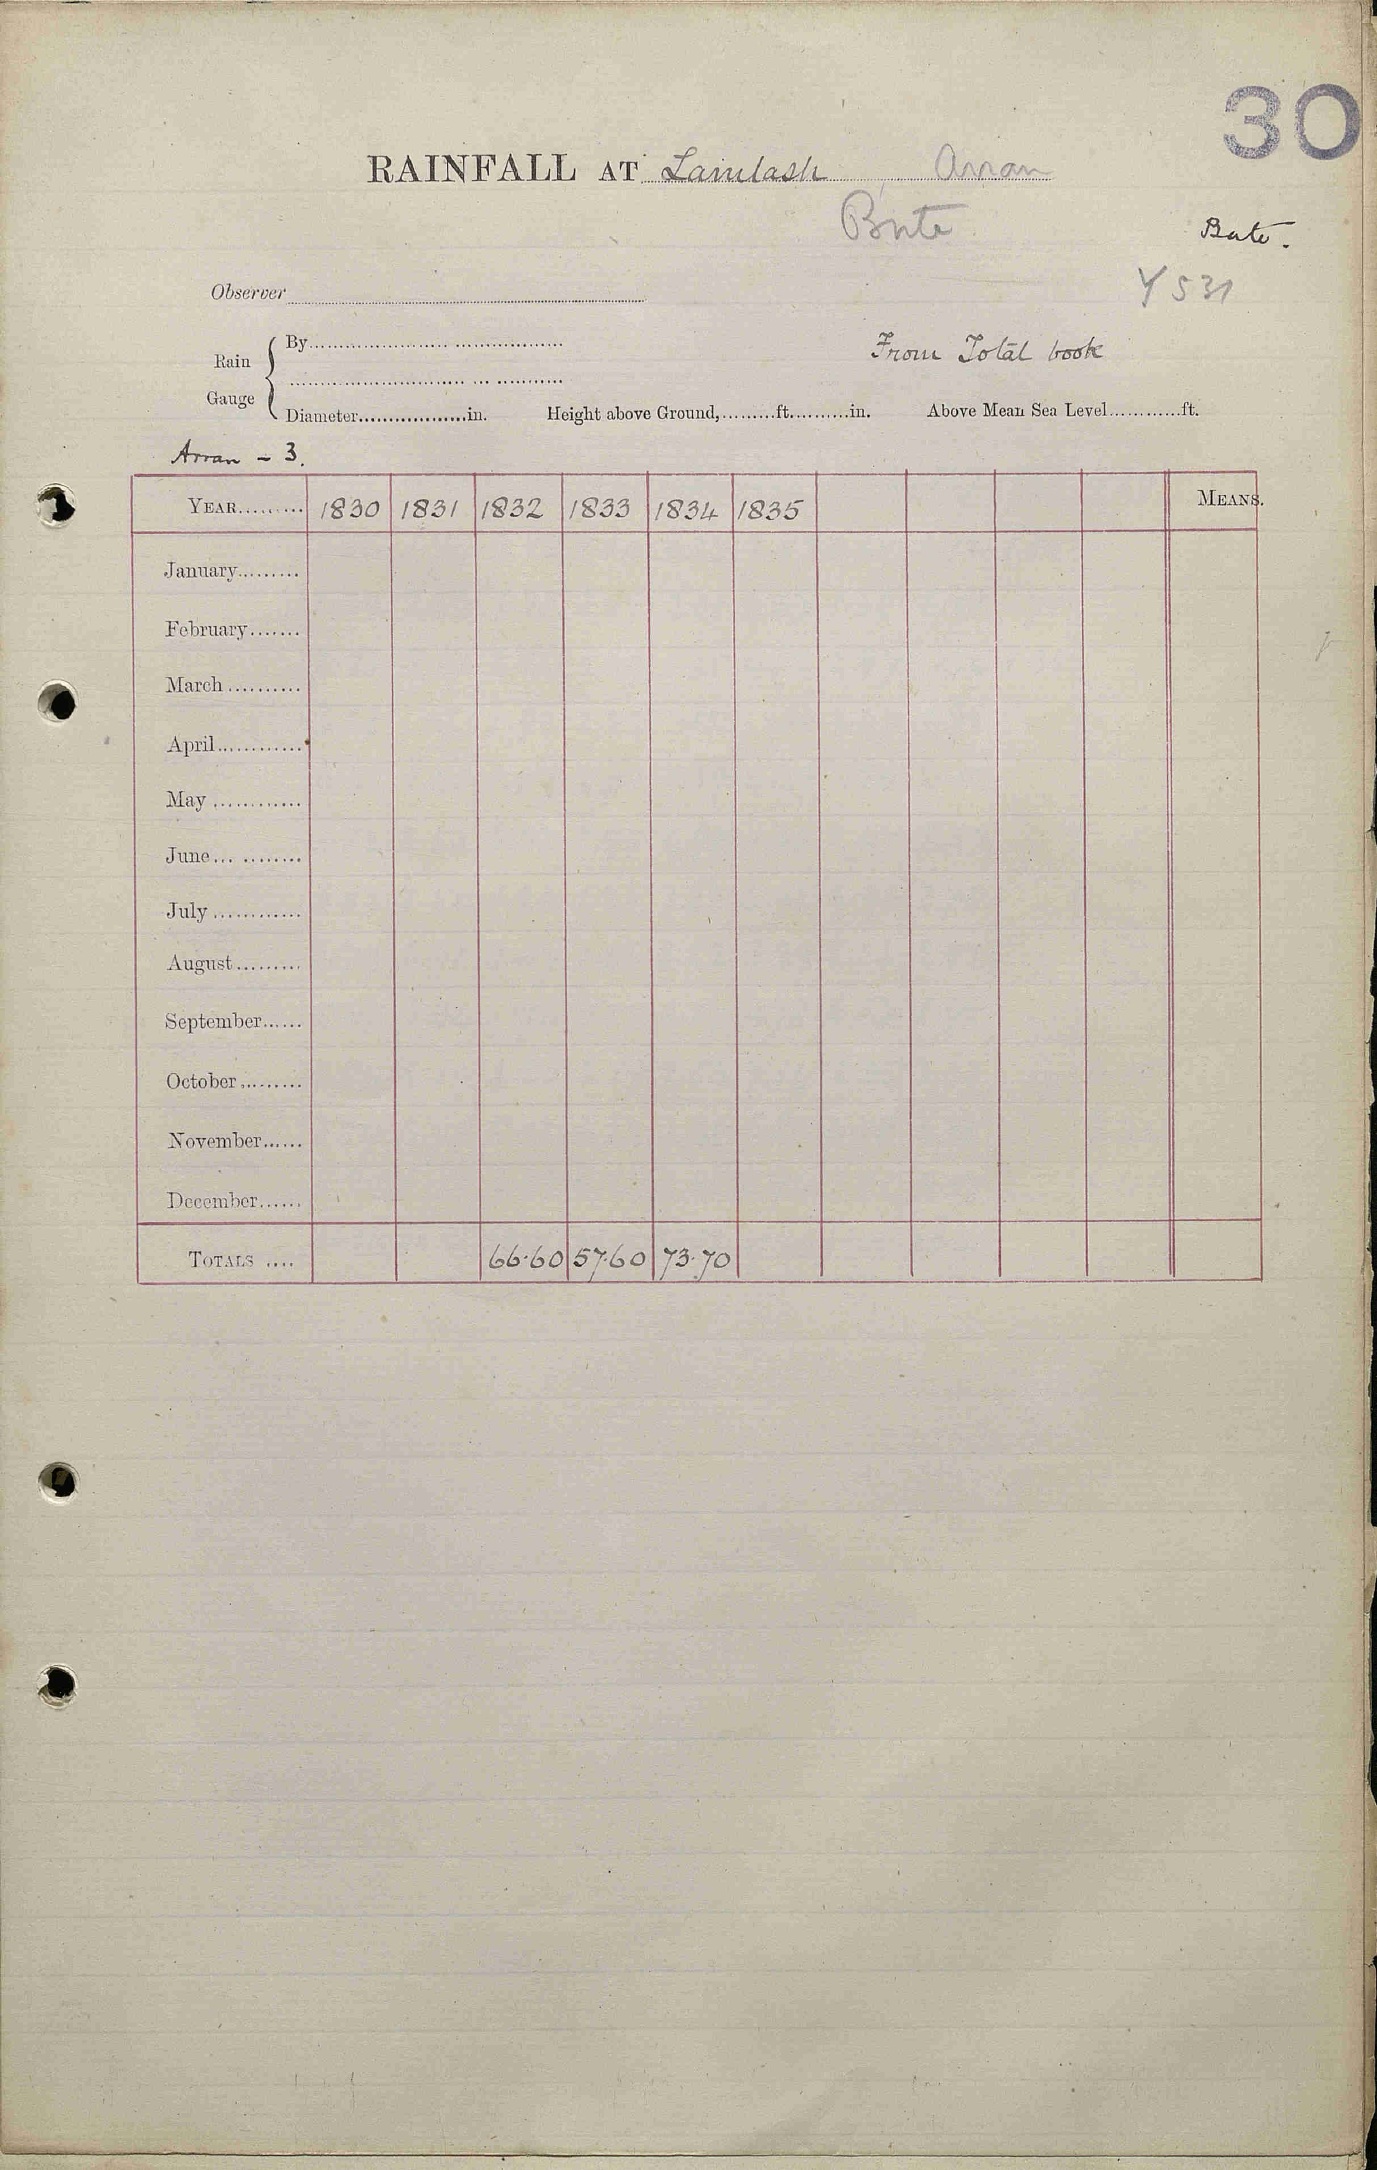 30
RAINFALL AT Lamlash, Arran
Bute
Bute.
Observer
Y 531
Rain Gauge { By
From Total book
Diameter in. Height above Ground, ft. in. Above Mean Sea Level ft.
Arran - 3.
YEAR 1830 1831 1832 1833 1834 1835 MEANS.
January
February
March
April
May
June
July
August
September
October
November
December
TOTALS 66.60 57.60 73.70